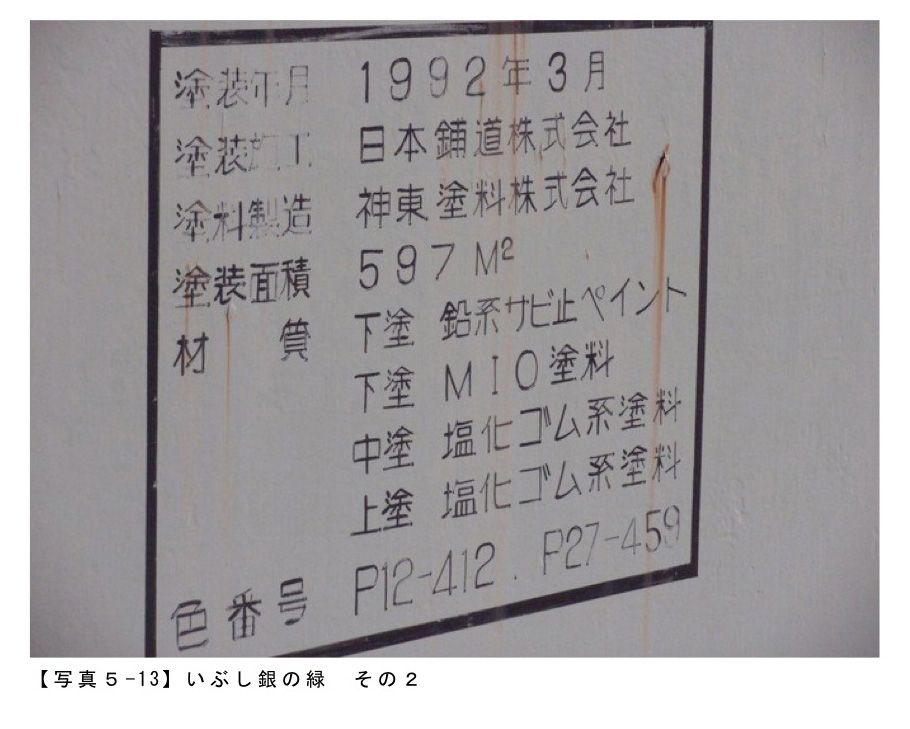 塗装年月 1992年3月
塗装施工 日本鋪道株式会社
塗料製造 神東塗料株式会社
塗装面積 597 M²
材質 下塗 鉛系サビ止ペイント
下塗 MIO塗料
中塗 塩化ゴム系塗料
上塗 塩化ゴム系塗料
色番号 P12-412. P27-459
【写真５-13】いぶし銀の緑　その２